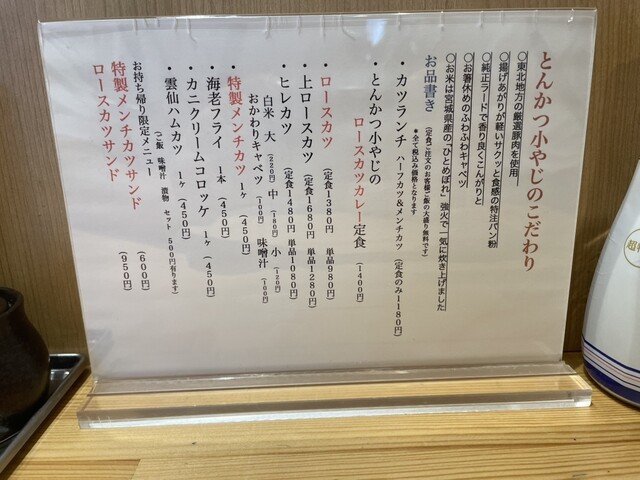 とんかつ小やじのこだわり
○東北地方の厳選豚肉を使用
○揚げあがりが軽いサクッと食感の特注パン粉
○純正ラードで香り良くこんがりと
○お箸休めのふわふわキャベツ
○お米は宮城県産の「ひとめぼれ」強火で一気に炊き上げました
お品書き (定食ご注文のお客様ご飯の大盛り無料です)
*全て税込み価格となります
・カツランチ ハーフカツ&メンチカツ (定食のみ1180円)
・とんかつ小やじの
ロースカツカレー定食 (1400円)
・ロースカツ (定食1380円 単品980円)
・上ロースカツ (定食1680円 単品1280円)
・ヒレカツ (定食1480円 単品1080円)
白米 大(220円) 中(180円) 小(120円)
おかわりキャベツ(100円) 味噌汁(100円)
・特製メンチカツ 1ヶ(450円)
・海老フライ 1本(450円)
・カニクリームコロッケ 1ヶ(450円)
・雲仙ハムカツ 1ヶ(450円)
(ご飯 味噌汁 漬物 セット 500円有ります)
お持ち帰り限定メニュー
特製メンチカツサンド (600円)
ロースカツサンド (950円)